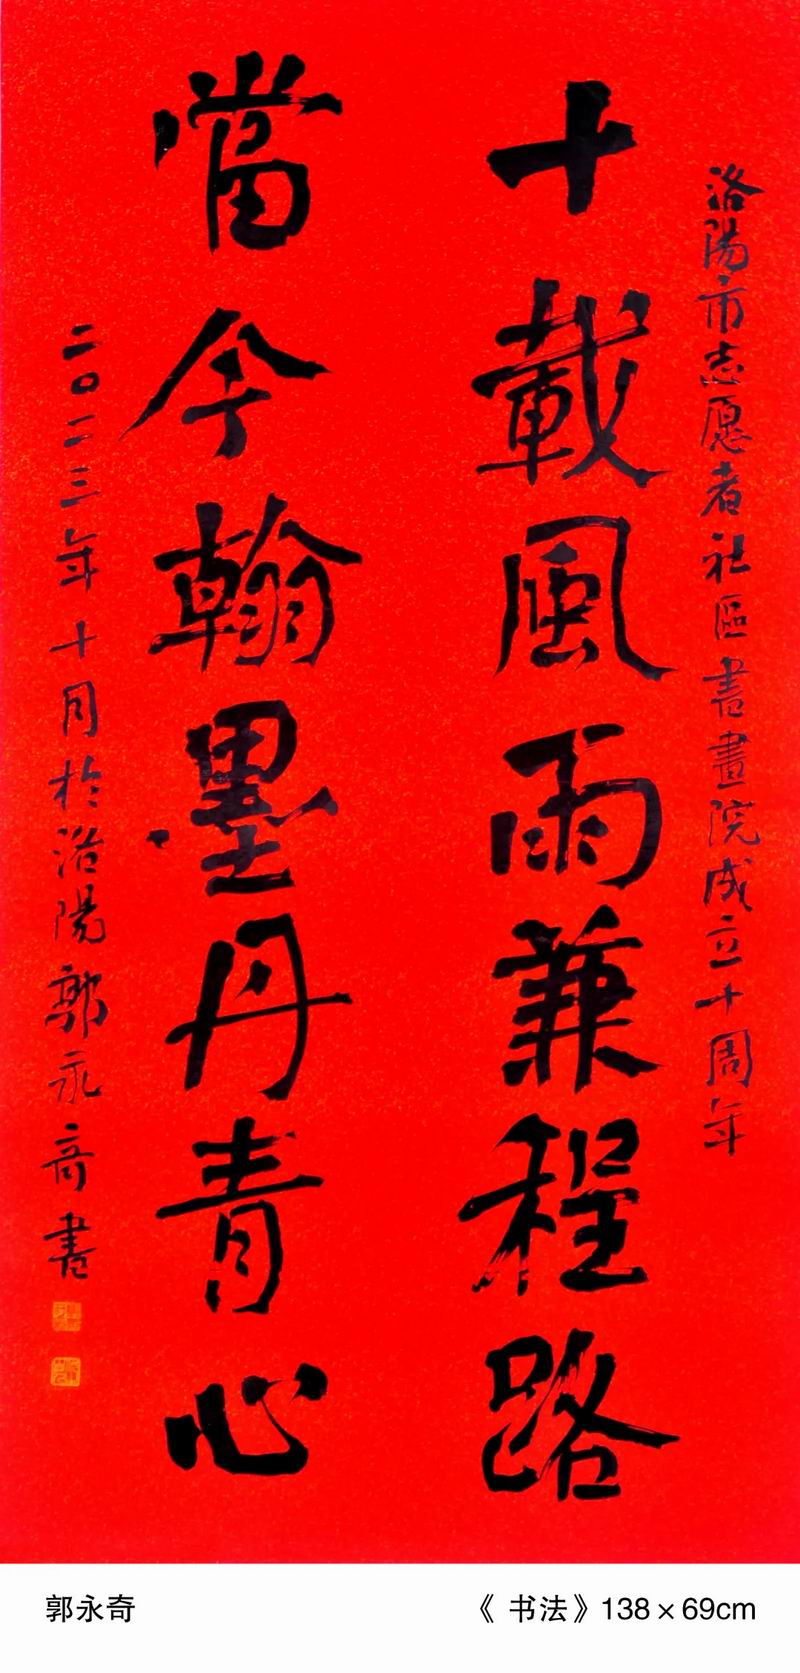 洛陽市志愿者社區書畫院成立十周年
十載風雨兼程路
當今翰墨丹青心
二〇二三年十月於洛陽郭永奇書
郭永奇
《书法》138×69cm